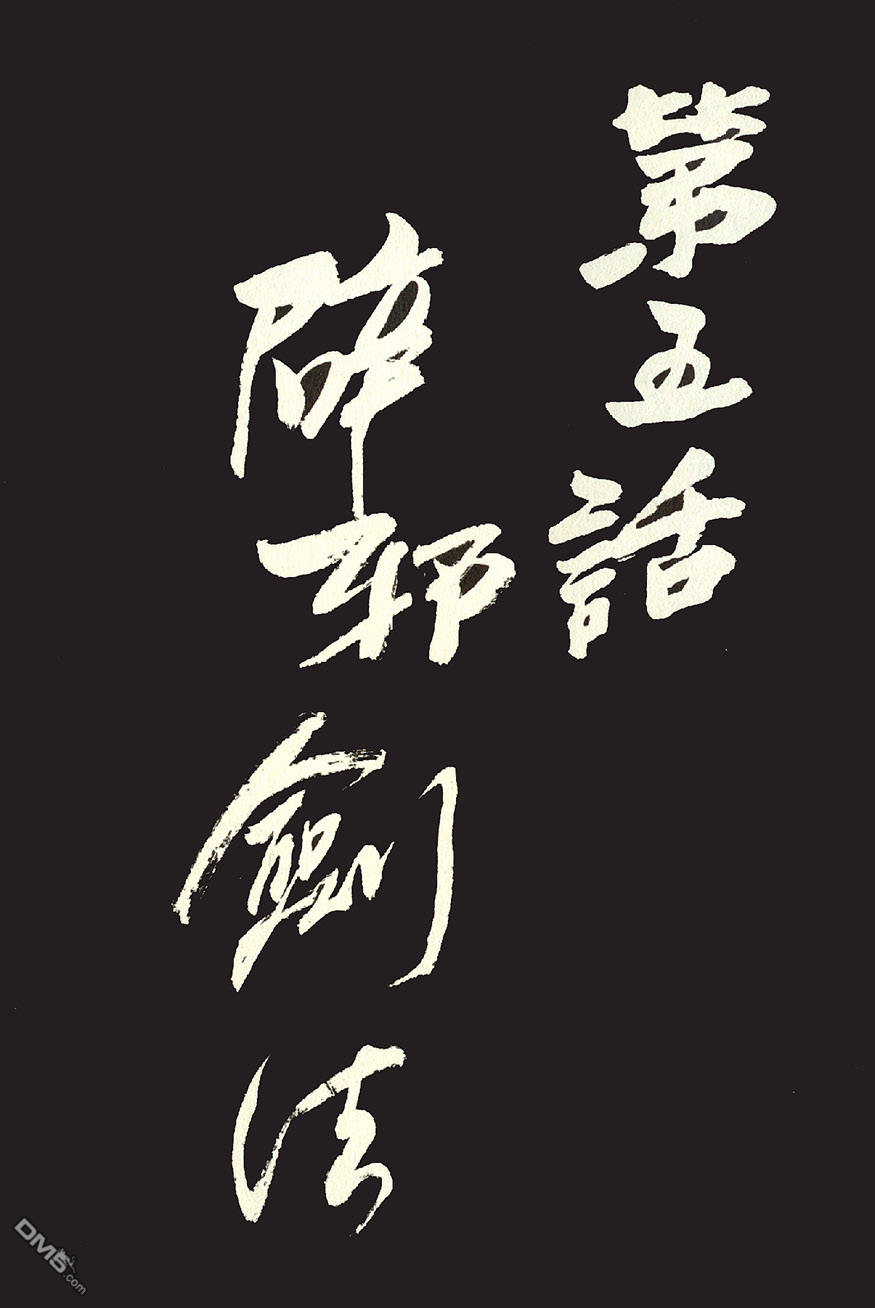 第五話
辟邪劍法
DM5.com